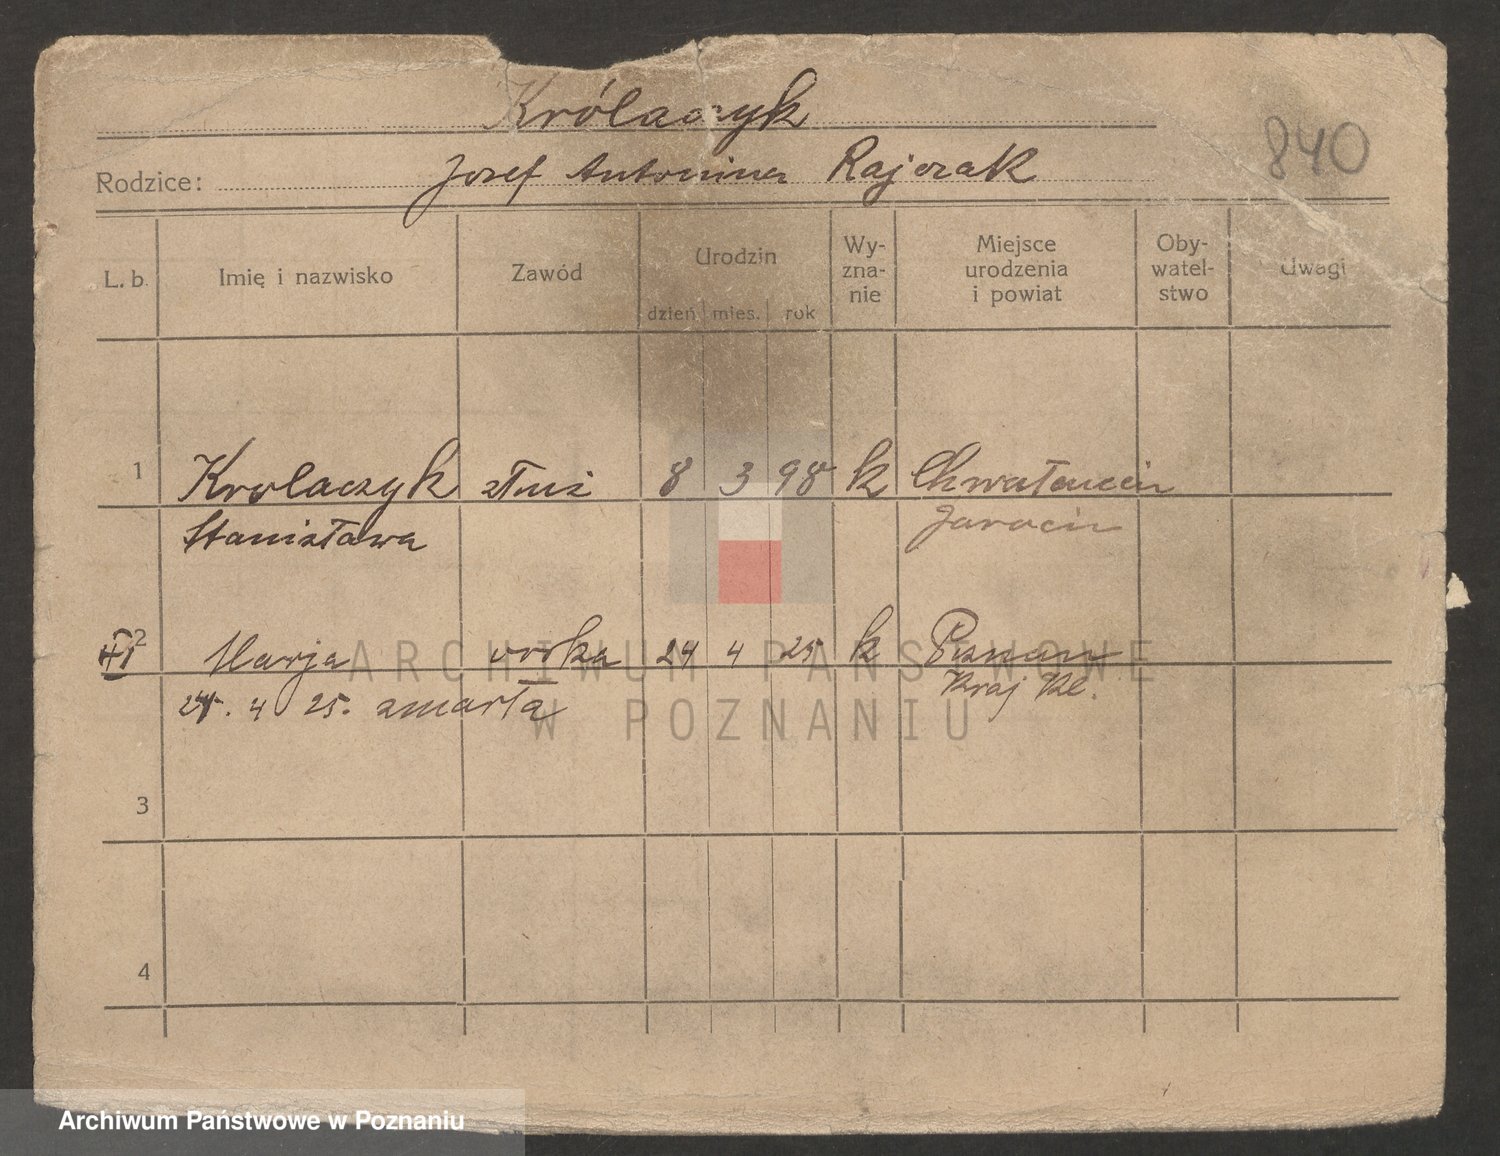 Królaczyk
840
Rodzice: Josef Antonina Rajczak
L. b. Imię i nazwisko Zawód Urodzin dzień mies. rok Wy-zna-nie Miejsce urodzenia i powiat Oby-watel-stwo Uwagi
1 Krolaczyk służ 8 3 98 k
Stanisława Jarocin
2 Marja córka 24 4 25 k Poznań
4 25. zmarła Kraj Kl.
3
4
ARCHIWUM PAŃSTWOWE
W POZNANIU
Archiwum Państwowe w Poznaniu